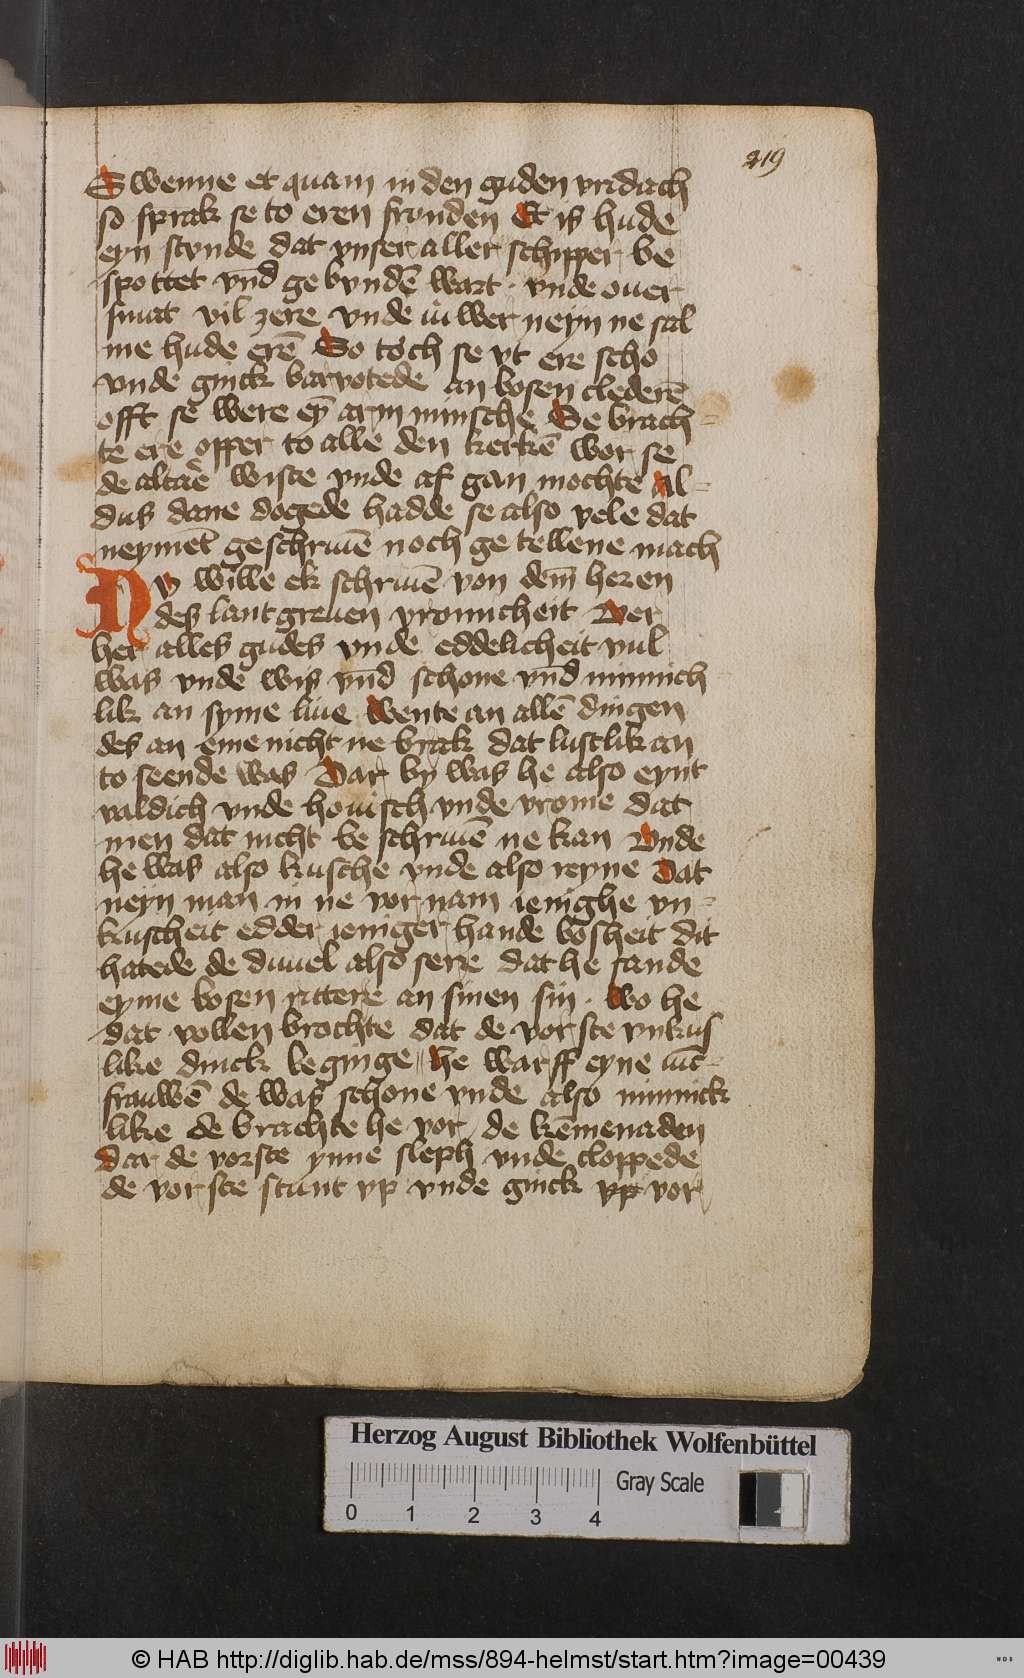 219
Swenne et quam in den guden vridach
so sprak se to eren fronden Et is hude
eyn stunde dat vnser aller schipper be
spottet vn̄d gebundē wart · vnde ouer
smat vil zere vnde iuwer neyn ne sal
me hude erē So toch se vt ere scho
vnde ginck barvotede an bosen clederē
offt se were eȳ arm minsche Se brach-
te ere offer to alle den kerkē wor se
de altaē wiste vnde af gan mochte Al-
dus dane dogede hadde se also vele dat
neymēt geschriuē noch getellene mach
Nv wille ek schriuē von dem̄ heren
des lantgreuen vromicheit Der
her alles gudes vnde eddelicheit vul
was vnde wis vn̄d schone vn̄d minnich
lik an syme liue Wente an allē dingen
des an eme nicht ne brak dat lustlik an
to seende was Dar by was he also eynt
valdich vnde houisch vnde vrome dat
men dat nicht beschriuē ne kan Vnde
he was also kusche vnde also reyne Dat
neyn man in ne vornam ienighe vn-
kuscheit edder ieniger hande bosheit dit
hatede de duuel also sere dat he sande
eyme bosen rittere an sinen sin · Wo he
dat vollen brochte dat de vorste vnkus
like dinck beginge he warff eyne iūc-
frauwē de was schone vnde also minnick
like de brachte he vor de kēmenaden
dar de vorste ynne sleph vnde cloppede
de vorste stunt vp vnde ginck vp vor
Herzog August Bibliothek Wolfenbüttel
Gray Scale
0 1 2 3 4
© HAB http://diglib.hab.de/mss/894-helmst/start.htm?image=00439